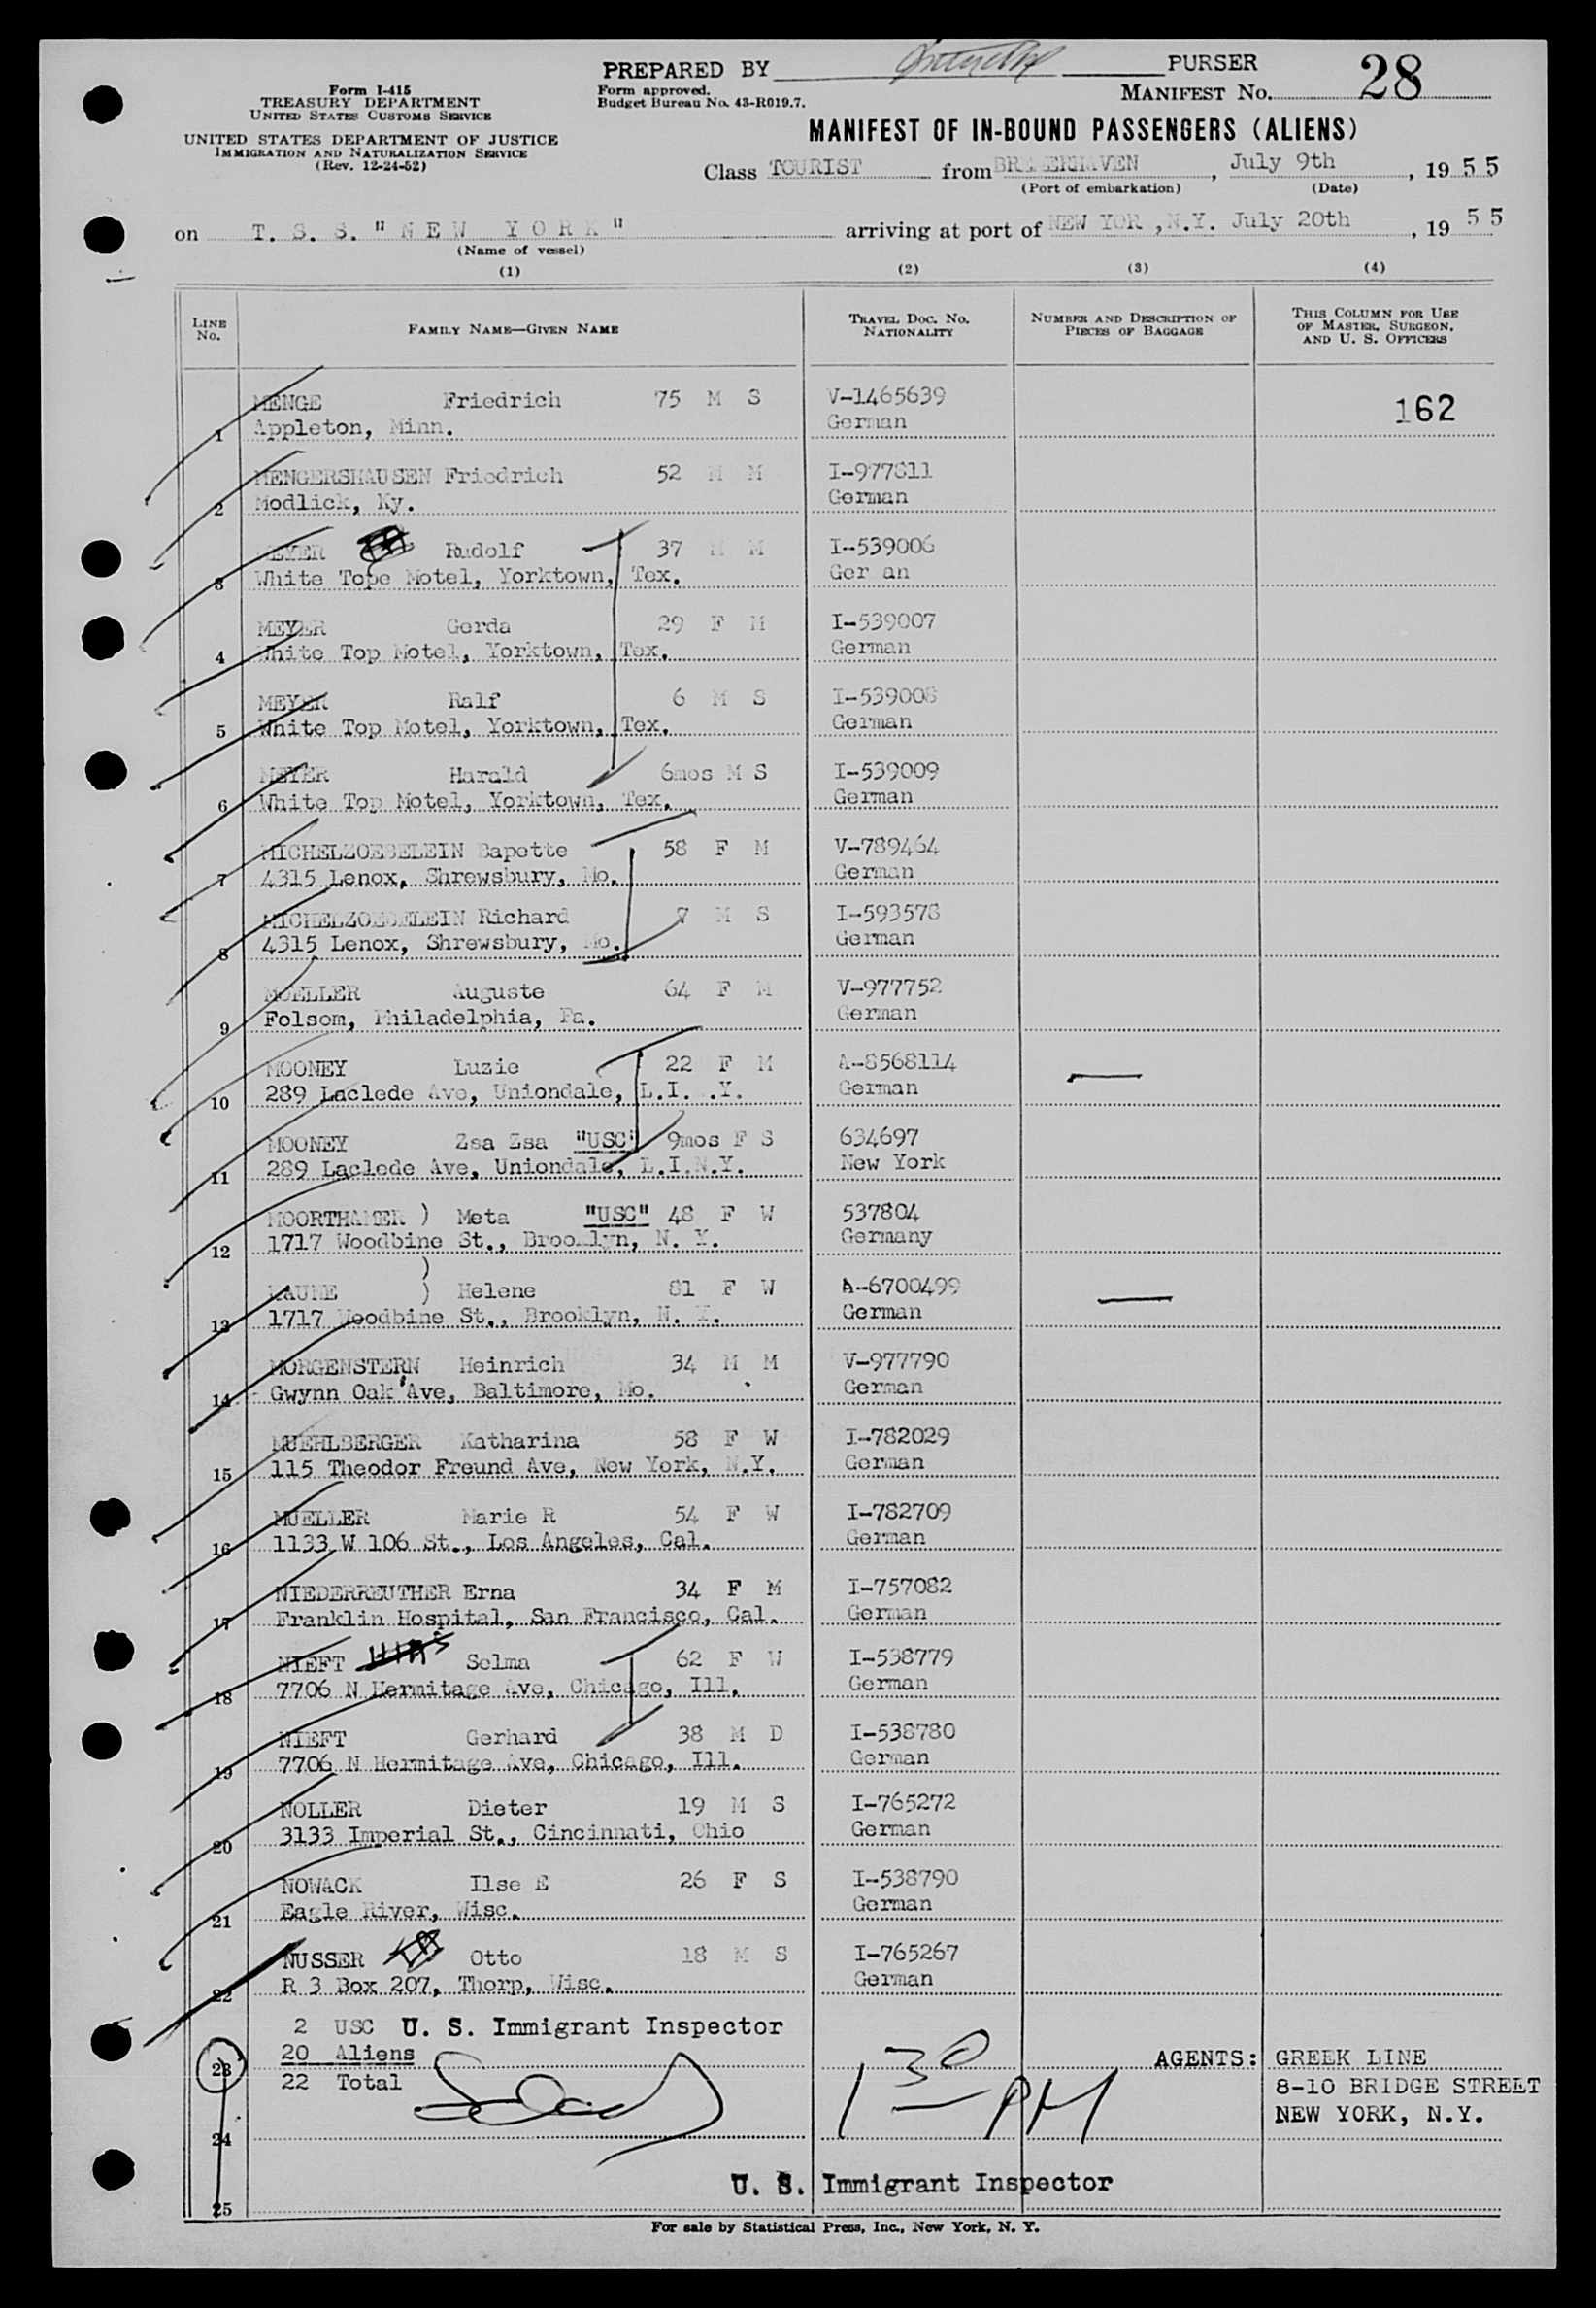 PREPARED BY PURSER
Form I-415
TREASURY DEPARTMENT
UNITED STATES CUSTOMS SERVICE
UNITED STATES DEPARTMENT OF JUSTICE
IMMIGRATION AND NATURALIZATION SERVICE
(Rev. 12-24-52)
Form approved.
Budget Bureau No. 43-R019.7.
MANIFEST NO. 28
MANIFEST OF IN-BOUND PASSENGERS (ALIENS)
Class TOURIST from BREMERHAVEN, July 9th, 1955
(Port of embarkation) (Date)
on T. S. S. "NEW YORK" arriving at port of NEW YOR ,N.Y. July 20th, 1955
(Name of vessel)
(1) (2) (3) (4)
LINE NO. FAMILY NAME—GIVEN NAME TRAVEL DOC. NO. NATIONALITY NUMBER AND DESCRIPTION OF PIECES OF BAGGAGE THIS COLUMN FOR USE OF MASTER, SURGEON, AND U. S. OFFICERS
MENGE Friedrich 75 M S V-1465639 162
1 Appleton, Minn. German
MENGERSHAUSEN Friedrich 52 M M I-977811
2 Modlick, Ky. German
MEYER Rudolf 37 M M I-539006
3 White Tope Motel, Yorktown, Tex. Ger an
MEYER Gerda 29 F M I-539007
4 White Top Motel, Yorktown, Tex. German
MEYER Ralf 6 M S I-539008
5 White Top Motel, Yorktown, Tex. German
MEYER Harald 6mos M S I-539009
6 White Top Motel, Yorktown, Tex. German
MICHELZOESELEIN Bapette 58 F M V-789464
7 4315 Lenox, Shrewsbury, Mo. German
MICHELZOESELEIN Richard 7 M S I-593578
8 4315 Lenox, Shrewsbury, Mo. German
MUELLER Auguste 64 F M V-977752
9 Folsom, Philadelphia, Pa. German
MOONEY Luzie 22 F M A-8568114
10 289 Laclede Ave, Uniondale, L.I. .Y. German
MOONEY Zsa Zsa "USC" 9mos F S 634697
11 289 Laclede Ave, Uniondale, L.I.N.Y. New York
MOORTHAMER ) Meta "USC" 48 F W 537804
12 1717 Woodbine St., Brooklyn, N. Y. Germany
)
MAUNE ) Helene 81 F W A-6700499
13 1717 Woodbine St., Brooklyn, N. Y. German
MORGENSTERN Heinrich 34 M M V-977790
14 Gwynn Oak Ave, Baltimore, Mo. German
MUEHLBERGER Katharina 58 F W I-782029
15 115 Theodor Freund Ave, New York, N.Y. German
MUELLER Marie R 54 F W I-782709
16 1133 W 106 St., Los Angeles, Cal. German
NIEDERREUTHER Erna 34 F M I-757082
17 Franklin Hospital, San Francisco, Cal. German
NIEFT HIAS Selma 62 F W I-538779
18 7706 N Hermitage Ave, Chicago, Ill. German
NIEFT Gerhard 38 M D I-538780
19 7706 N Hermitage Ave, Chicago, Ill. German
NOLLER Dieter 19 M S I-765272
20 3133 Imperial St., Cincinnati, Ohio German
NOWACK Ilse E 26 F S I-538790
21 Eagle River, Wisc. German
NUSSER Otto 18 M S I-765267
22 R 3 Box 207, Thorp, Wisc. German
2 USC U. S. Immigrant Inspector
23 20 Aliens 1 30 PM AGENTS: GREEK LINE
22 Total 8-10 BRIDGE STREET
NEW YORK, N.Y.
24
U. S. Immigrant Inspector
25
For sale by Statistical Press, Inc., New York, N. Y.